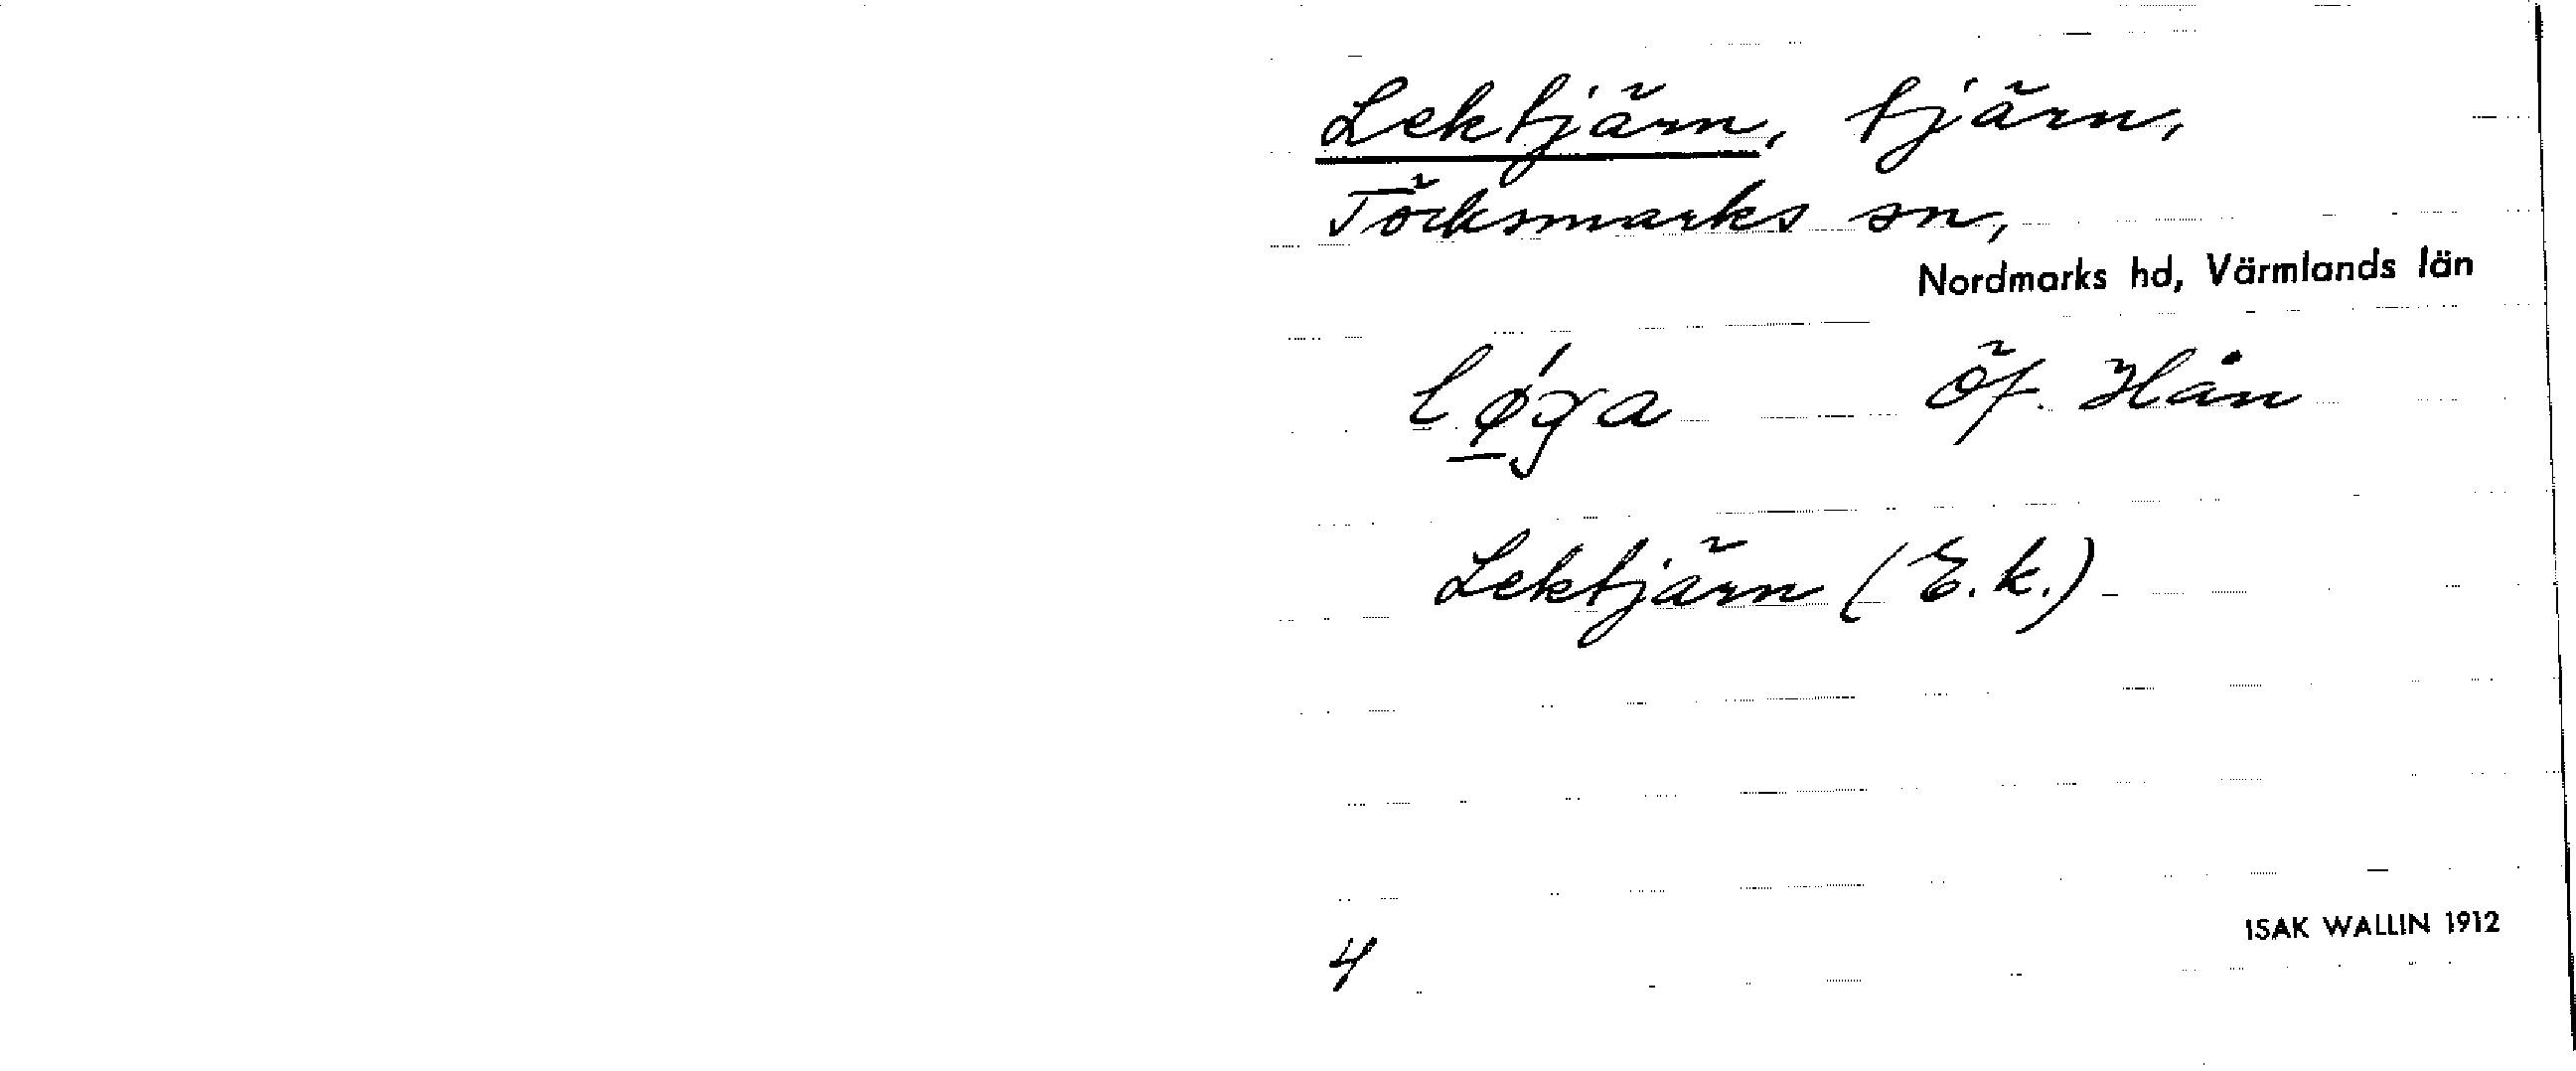 Lektjärn, tjärn,
Töcksmarks sn,
Nordmarks hd, Värmlands län
løʹga Öf. Hån
Lektjärn (E.k.)
4
ISAK WALLIN 1912